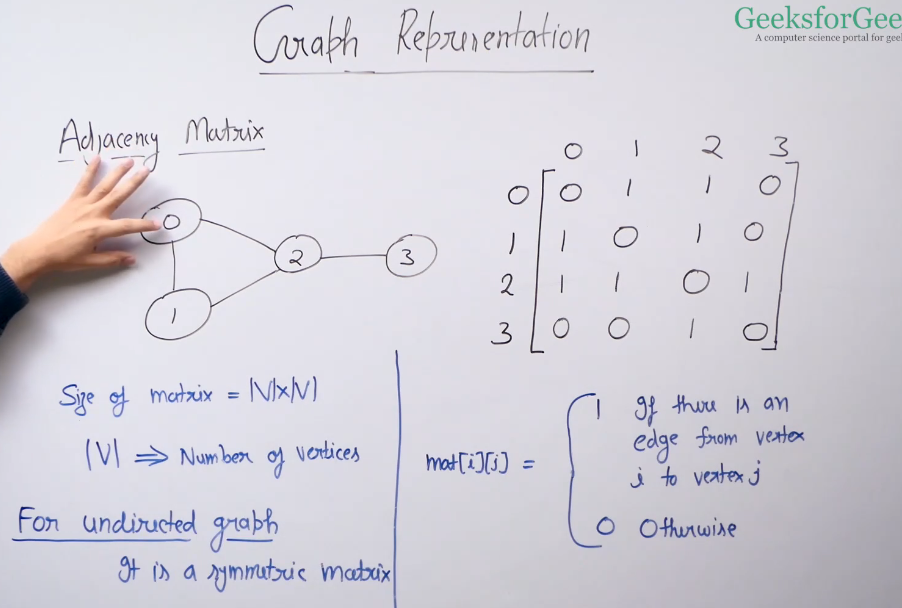 GeeksforGee
A computer science portal for geek
Graph Representation
Adjacency Matrix
0
1
2
3
0 1 2 3
0 0 1 1 0
1 1 0 1 0
2 1 1 0 1
3 0 0 1 0
Size of matrix = |V|x|V|
|V| ⇒ Number of vertices
For undirected graph
It is a symmetric matrix
mat[i][j] =
1 If there is an
edge from vertex
i to vertex j
0 Otherwise